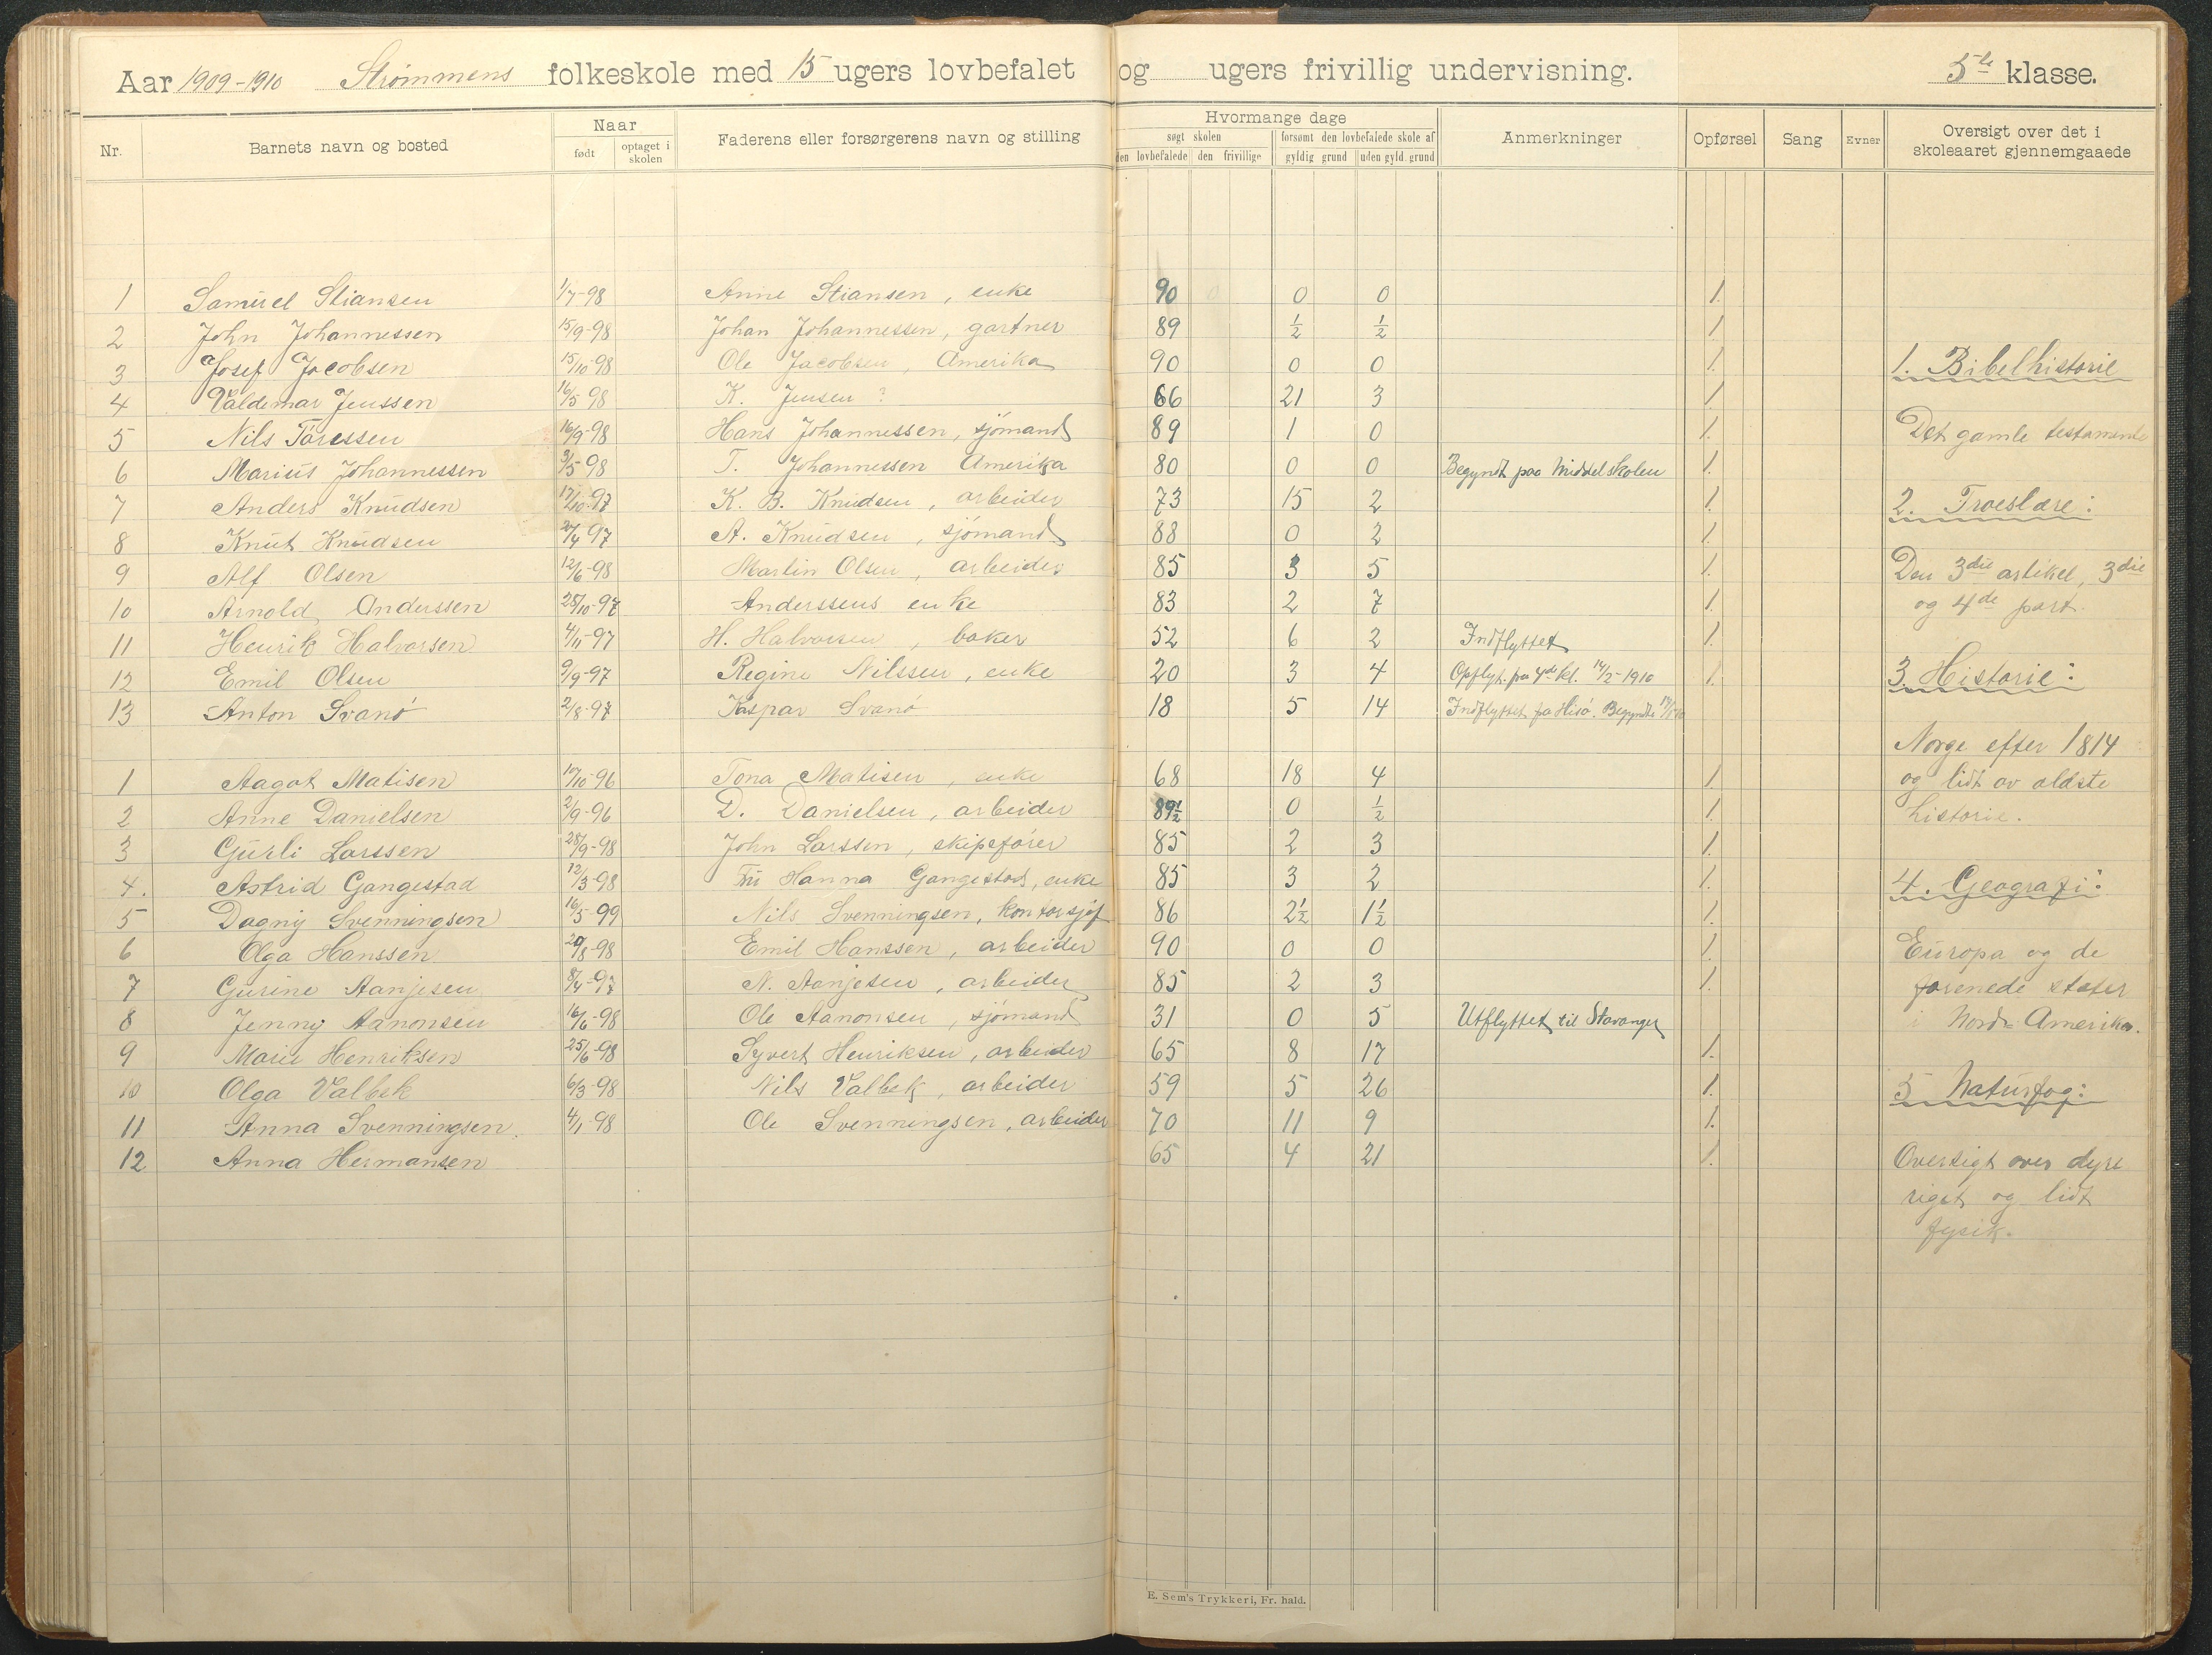 Aar 1909-1910 Strømmens folkeskole med 15 ugers lovbefalet og ugers frivillig undervisning. 5te klasse.
Nr. Barnets navn og bosted Naar født optaget i skolen Faderens eller forsørgerens navn og stilling Hvormange dage søgt skolen den lovbefalede den frivillige forsømt den lovbefalede skole af gyldig grund uden gyld. grund Anmerkninger Opførsel Sang Evner Oversigt over det i skoleaaret gjennemgaaede
1 Samuel Stiansen 1/7-98 Anne Stiansen, enke 90 0 0 1.
2 John Johannessen 15/9-98 Johan Johannessen, gartner 89 ½ ½ 1.
3 Josef Jacobsen 15/10-98 Ole Jacobsen, Amerika 90 0 0 1. 1. Bibelhistorie
4 Valdemar Jenssen 16/5 98 K. Jensen ? 66 21 3 1.
5 Nils Taressen 16/9-98 Hans Johannessen, sjømand 89 1 0 1. Det gamle testamente
6 Marius Johannessen 3/5 98 T. Johannessen Amerika 80 0 0 Begyndt paa Middelskolen 1.
7 Anders Knudsen 17/10-97 K. B. Knudsen, arbeider 73 15 2 1. 2. Troeslære:
8 Knut Knudsen 27/4 97 A. Knudsen, sjømand 88 0 2 1.
9 Alf Olsen 12/6-98 Martin Olsen, arbeider 85 3 5 1. Den 3die artikel, 3die
10 Arnold Anderssen 28/10-97 Anderssens enke 83 2 7 1. og 4de part.
11 Henrik Halvorsen 4/11-97 H. Halvorsen, baker 52 6 2 Indflyttet 1.
12 Emil Olsen 9/9-97 Regine Nilssen, enke 20 3 4 Opflyt. fra 4de kl. 14/2-1910 1. 3. Historie:
13 Anton Svanø 2/8-97 Kaspar Svanø 18 5 14 Indflyttet fra Hisø. Begyndte
Norge efter 1814
1 Aagot Matisen 10/10-96 Tona Matisen, enke 68 18 4 1. og lidt av ældste
2 Anne Danielsen 2/9-96 D. Danielsen, arbeider 89½ 0 ½ 1. historie.
3 Gurli Larssen 28/9-98 John Larssen, skipsfører 85 2 3 1.
4. Astrid Gangestad 12/3-98 Fru Hanna Gangestad, enke 85 3 2 1. 4. Geografi:
5 Dagny Svenningsen 16/5-99 Nils Svenningsen, kontorsjef 86 2½ 1½ 1.
6 Olga Hanssen 29/8-98 Emil Hanssen, arbeider 90 0 0 1. Europa og de
7 Gurine Aanjesen 8/4-97 N. Aanjesen, arbeider 85 2 3 1. forenede stater
8 Jenny Aanonsen 16/6-98 Ole Aanonsen, sjømand 31 0 5 Utflyttet til Stavanger i Nord-Amerika.
9 Marie Henriksen 25/6-98 Syvert Henriksen, arbeider 65 8 17 1.
10 Olga Valbek 6/3-98 Nils Valbek, arbeider 59 5 26 1. 5 Naturfog:
11 Anna Svenningsen. 4/1-98 Ole Svenningsen, arbeider 70 11 9 1.
12 Anna Hermansen 65 4 21 1. Oversigt over dyre
riget og lidt
fysik.
E. Sem's Trykkeri, Fr. hald.